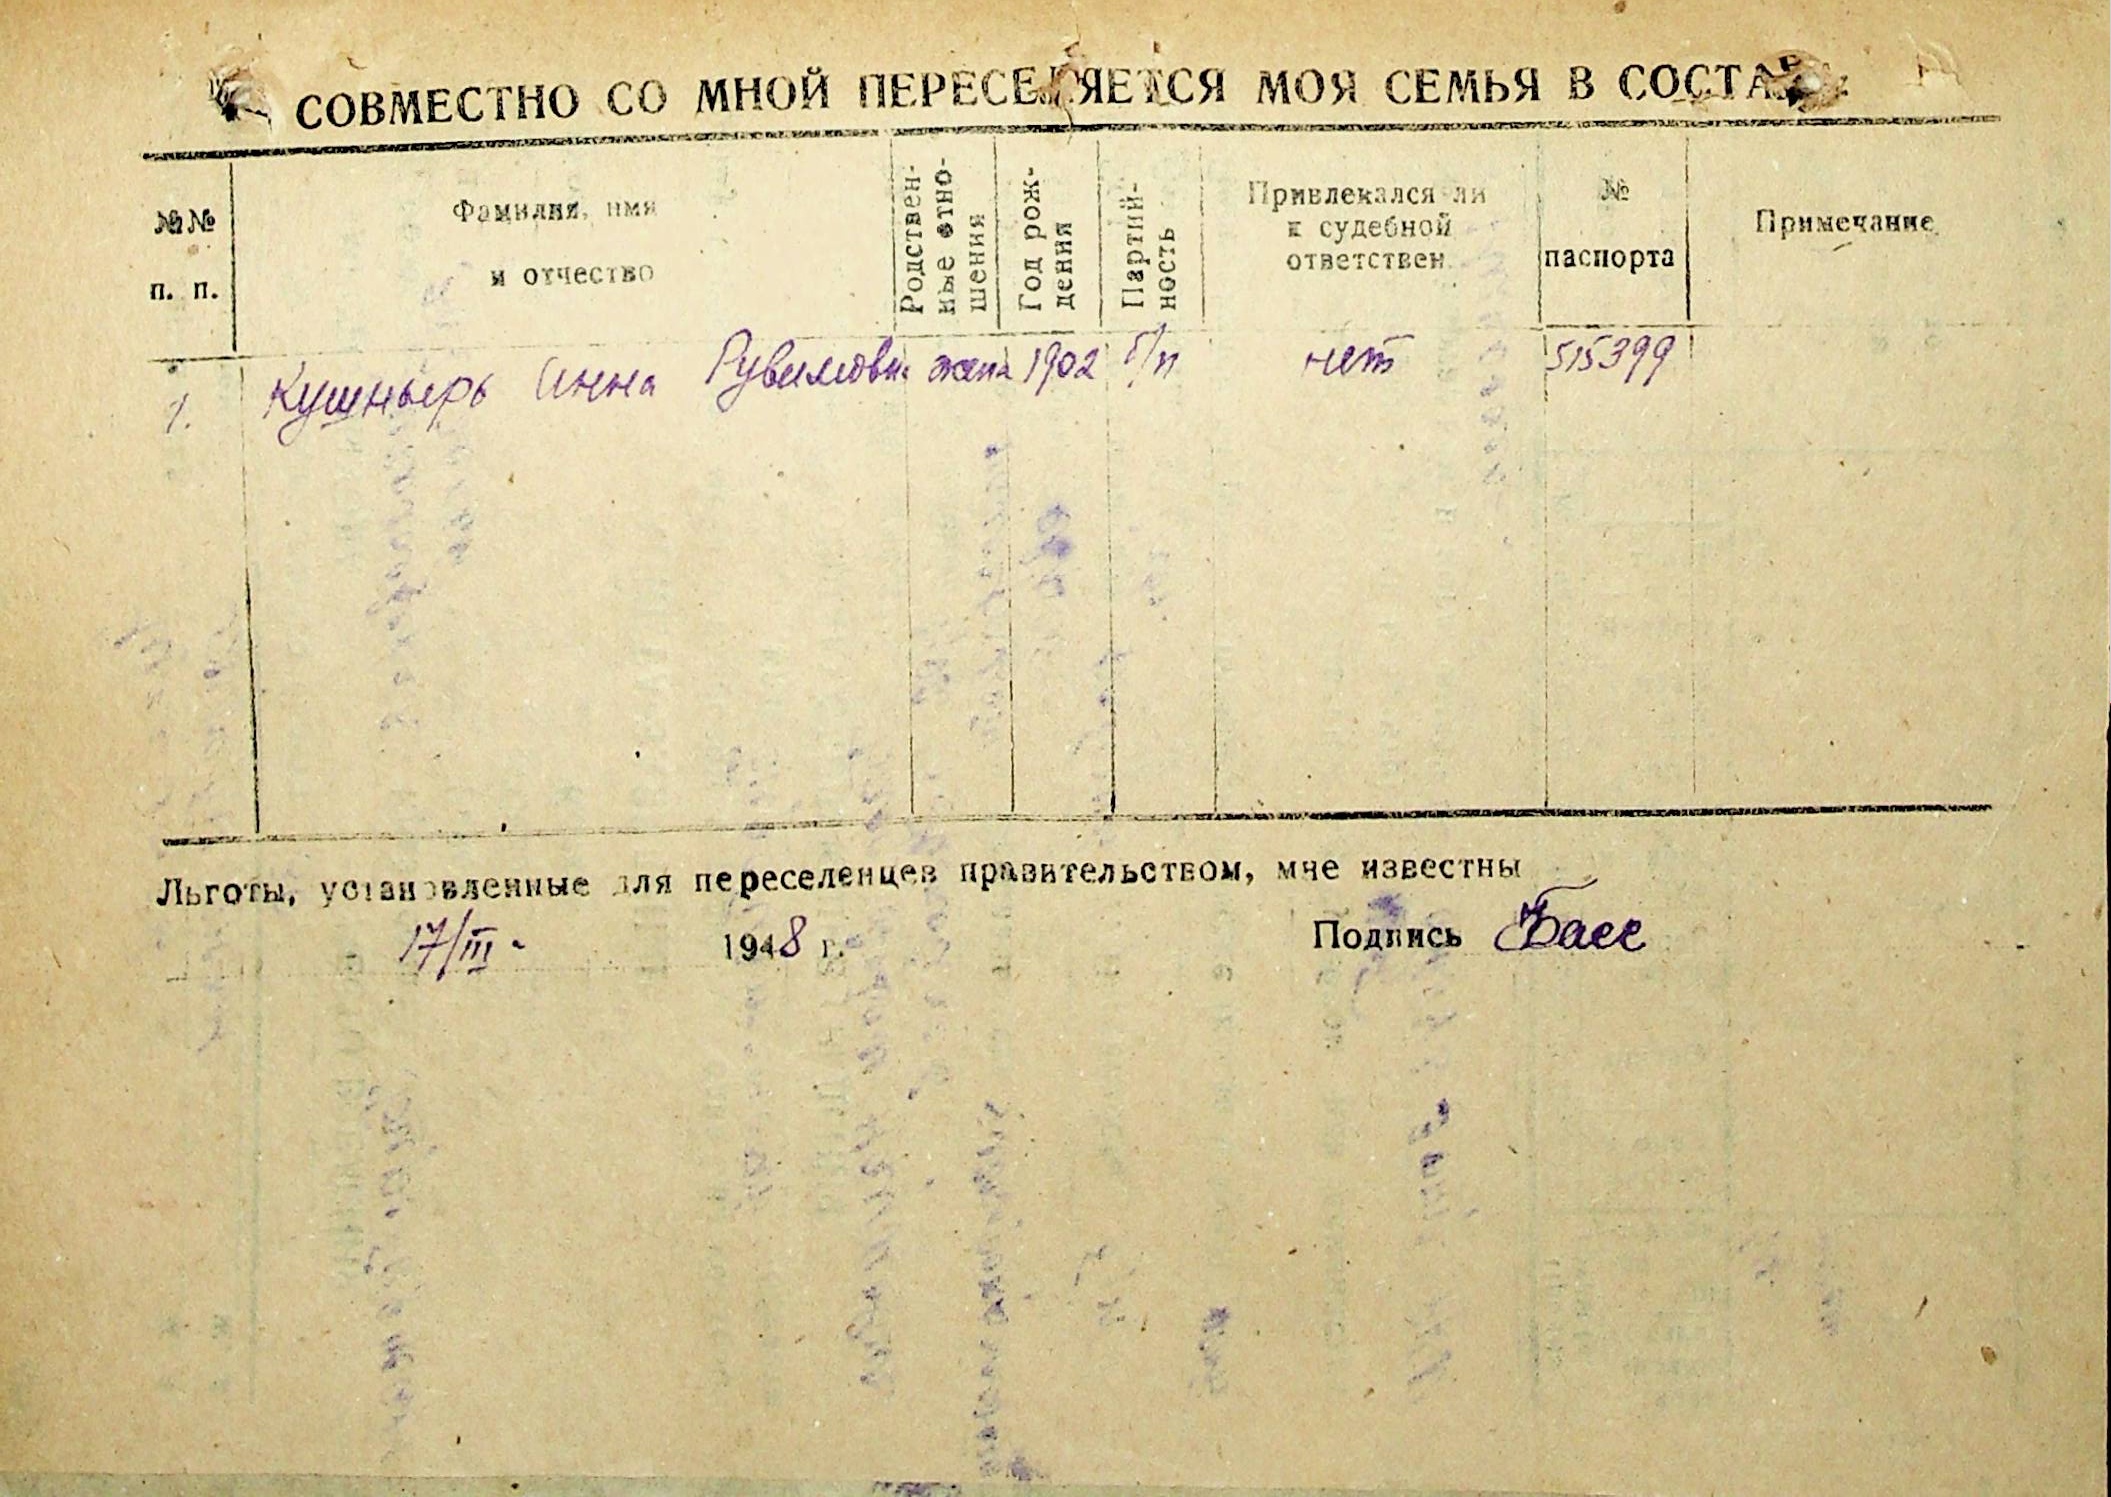 СОВМЕСТНО СО МНОЙ ПЕРЕСЕЛЯЕТСЯ МОЯ СЕМЬЯ В СОСТАВЕ:
№№ п. п.
Фамилия, имя и отчество
Родствен-ные отно-шения
Год рож-дения
Партий-ность
Привлекался ли к судебной ответствен.
№ паспорта
Примечание
1. Кушнырь Анна Рувимовн. жена 1902 б/п нет 515399
Льготы, установленные для переселенцев правительством, мне известны
17/III - 1948 г. Подпись Басс